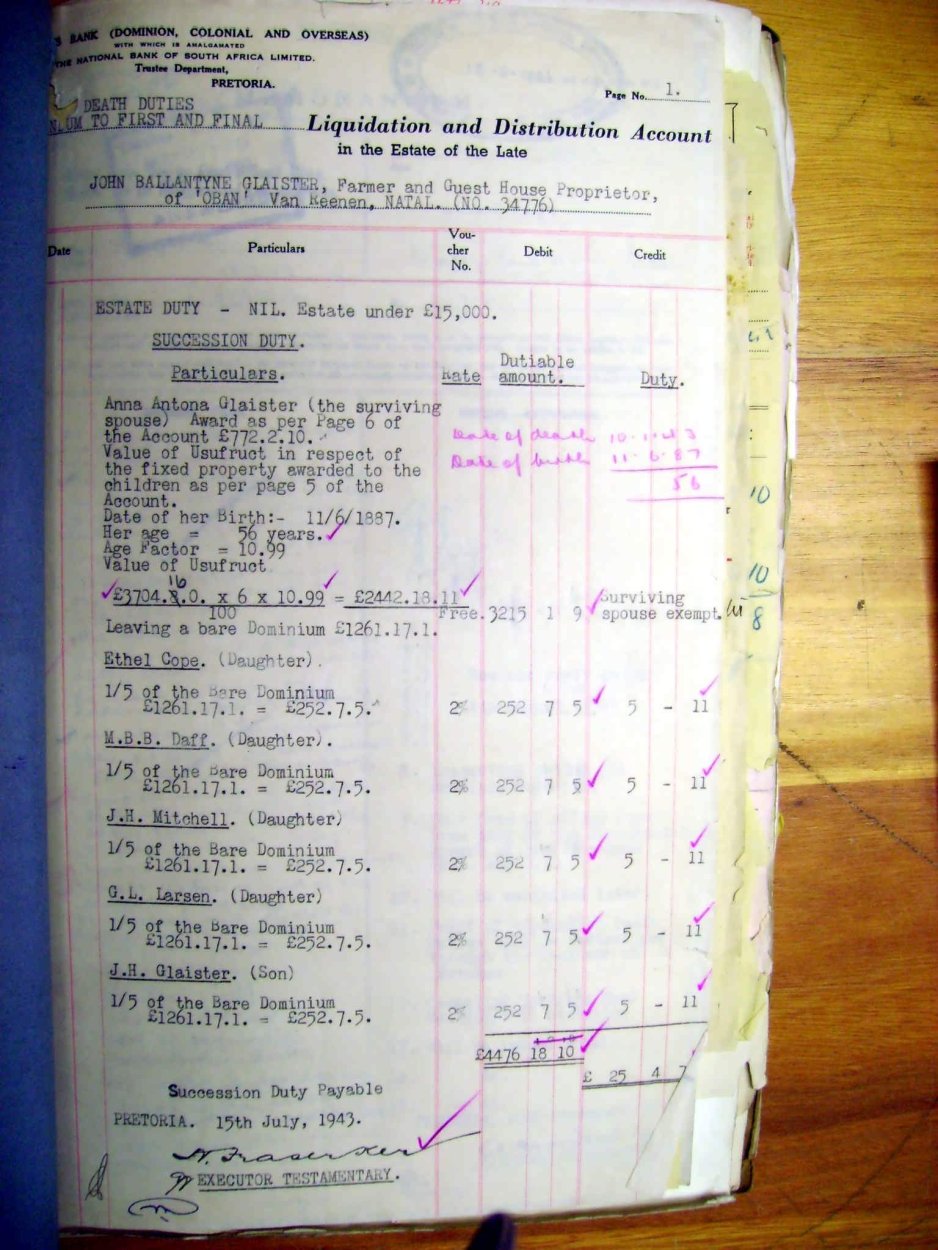 S BANK (DOMINION, COLONIAL AND OVERSEAS)
WITH WHICH IS AMALGAMATED
THE NATIONAL BANK OF SOUTH AFRICA LIMITED.
Trustee Department,
PRETORIA.
Page No. 1.
DEATH DUTIES
UM TO FIRST AND FINAL Liquidation and Distribution Account
in the Estate of the Late
JOHN BALLANTYNE GLAISTER, Farmer and Guest House Proprietor,
of 'OBAN' Van Reenen, NATAL. (NO. 34776)
Date Particulars Vou-cher No. Debit Credit
ESTATE DUTY - NIL. Estate under £15,000.
SUCCESSION DUTY.
Particulars. Rate Dutiable amount. Duty.
Anna Antona Glaister (the surviving
spouse) Award as per Page 6 of
the Account £772.2.10.
Date of death 10.1.43
Value of Usufruct in respect of
Date of birth 11.6.87
the fixed property awarded to the
56
children as per page 5 of the
Account.
Date of her Birth:- 11/6/1887.
Her age = 56 years.
Age Factor = 10.99
Value of Usufruct
16
£3704.8.0. x 6 x 10.99 = £2442.18.11
100
Free. 3215 1 9 Surviving spouse exempt.
Leaving a bare Dominium £1261.17.1.
Ethel Cope. (Daughter).
1/5 of the Bare Dominium
£1261.17.1. = £252.7.5. 2% 252 7 5 5 - 11
M.B.B. Daff. (Daughter).
1/5 of the Bare Dominium
£1261.17.1. = £252.7.5. 2% 252 7 5 5 - 11
J.H. Mitchell. (Daughter)
1/5 of the Bare Dominium
£1261.17.1. = £252.7.5. 2% 252 7 5 5 - 11
G.L. Larsen. (Daughter)
1/5 of the Bare Dominium
£1261.17.1. = £252.7.5. 2% 252 7 5 5 - 11
J.H. Glaister. (Son)
1/5 of the Bare Dominium
£1261.17.1. = £252.7.5. 2% 252 7 5 5 - 11
£4476 18 10
£ 25 4 7
Succession Duty Payable
PRETORIA. 15th July, 1943.
EXECUTOR TESTAMENTARY.
10
10
8